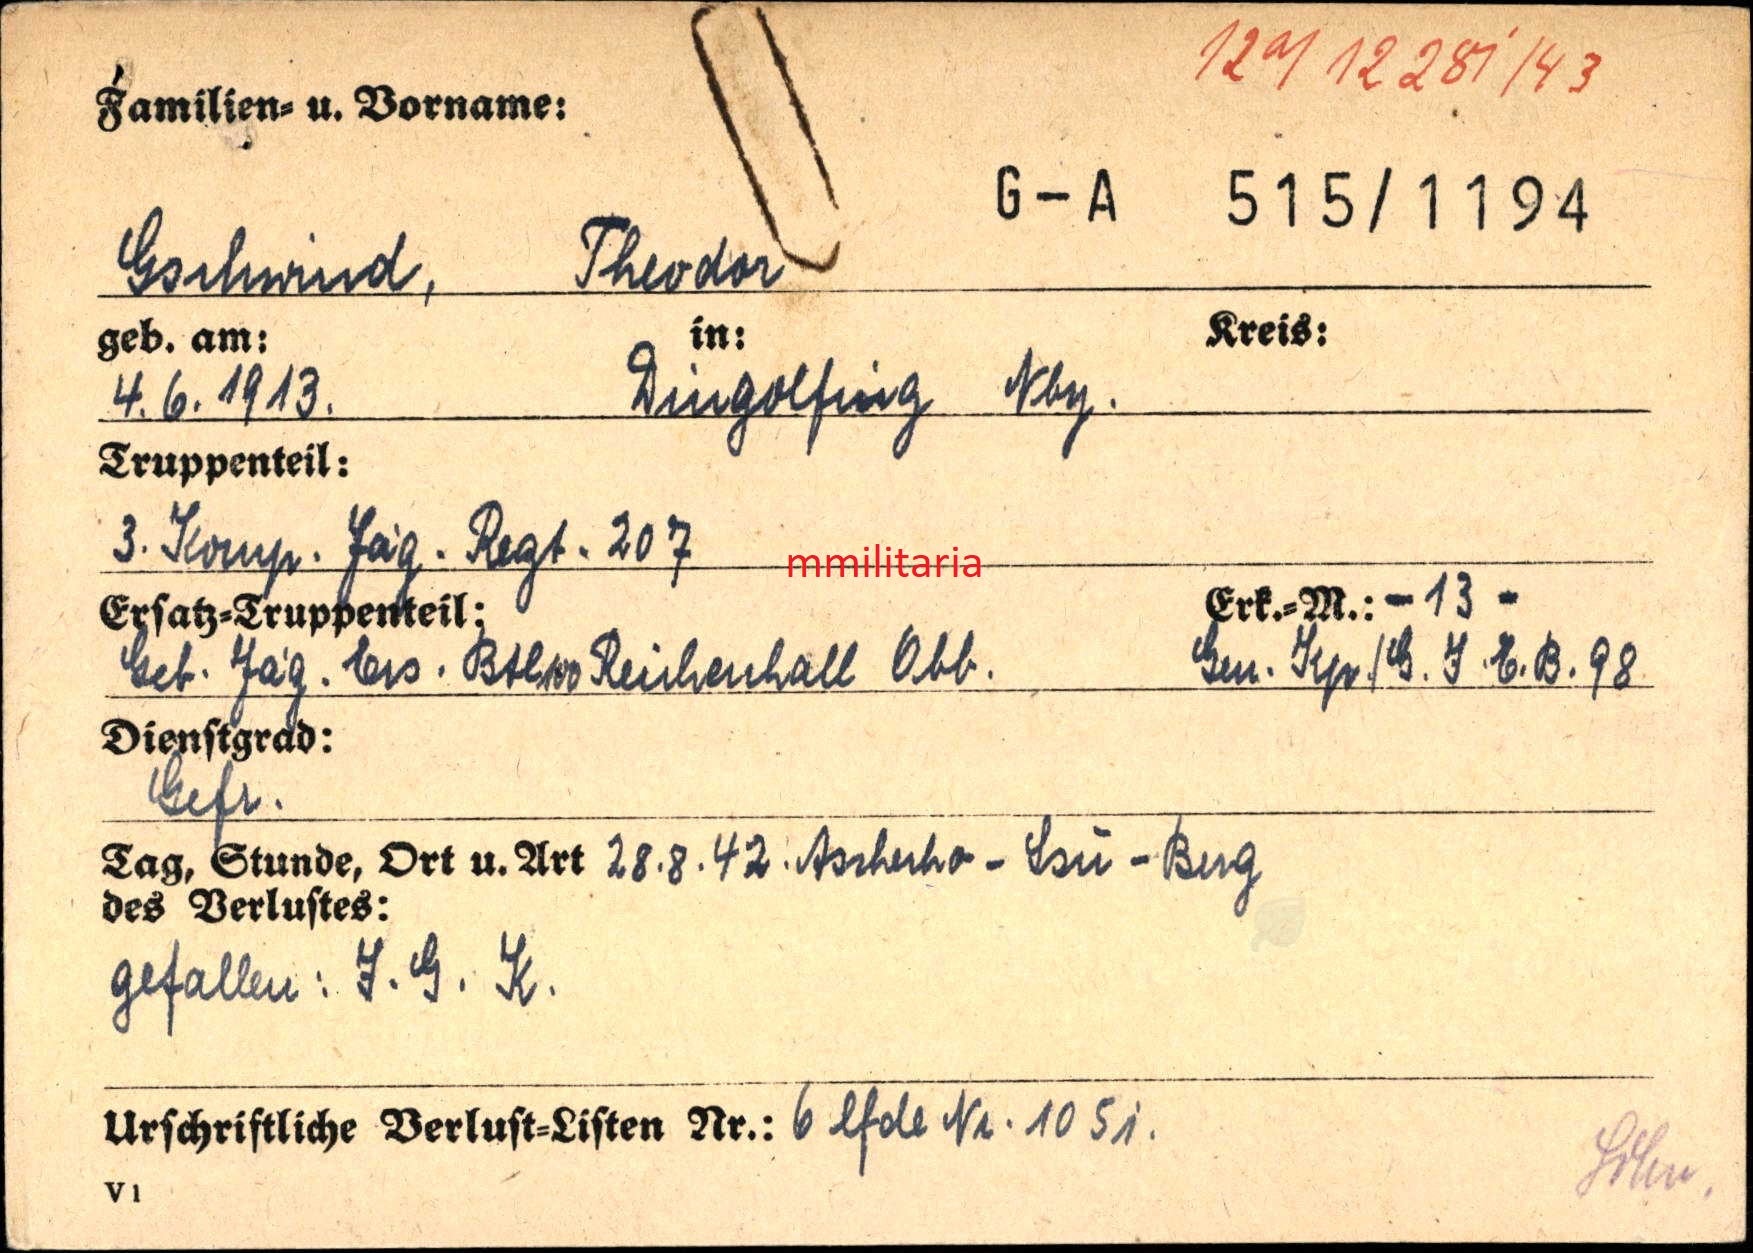 12a/ 12 281/43
Familien- u. Vorname:
G-A 515/1194
Gschwind, Theodor
geb. am: in: Kreis:
4.6.1913. Dingolfing Nby.
Truppenteil:
3. Komp. Jäg. Regt. 207
mmilitaria
Ersatz-Truppenteil: Erk.-M.: -13-
Geb. Jäg. Ers. Btl. 100 Reichenhall Obb. Gen. Kp./G.J.E.B. 98
Dienstgrad:
Gefr.
Tag, Stunde, Ort u. Art 28.8.42. Ascheho - Lsu - Berg
des Verlustes:
gefallen: J. G. K.
Urschriftliche Verlust-Listen Nr.: 6 lfde Nr. 105i.
V 1